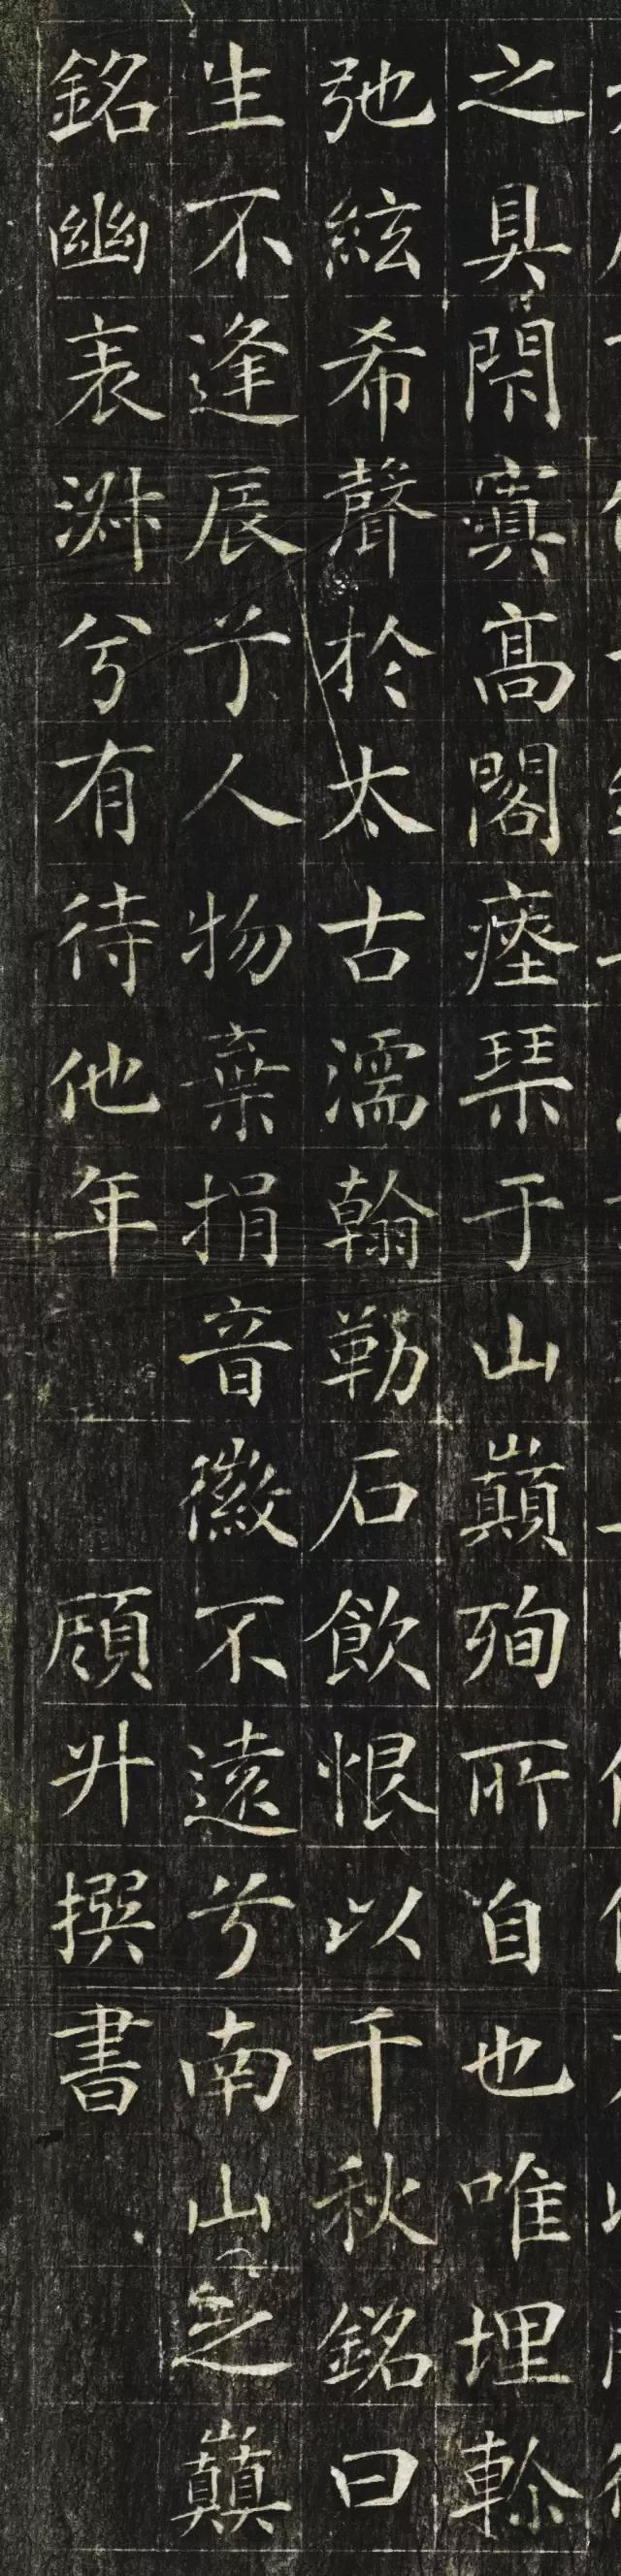 之具閑寘高閣瘞琹于山巔殉所自也唯埋軫
弛絃希聲於太古濡翰勒石飲恨以千秋銘曰
生不逢辰兮人物棄捐音徽不遠兮南山之巔
銘幽表淑兮有待他年 頋升撰書